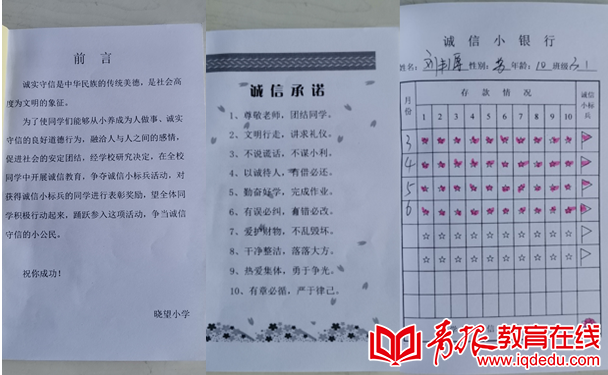 前 言
诚实守信是中华民族的传统美德,是社会高
度为文明的象征。
为了使同学们能够从小养成为人做事,诚实
守信的良好道德行为,融洽人与人之间的感情,
促进社会的安定团结,经学校研究决定,在全校
同学中开展诚信教育,争夺诚信小标兵活动,对
获得诚信小标兵的同学进行表彰奖励,望全体同
学积极行动起来,踊跃参入这项活动,争当诚信
守信的小公民。
祝你成功!
晓望小学
诚信承诺
1、尊敬老师,团结同学。
2、文明行走,讲求礼仪。
3、不说谎话,不谋小利。
4、以诚待人,有借必还。
5、勤奋好学,完成作业。
6、有误必纠,有错必改。
7、爱护财物,不乱毁坏。
8、干净整洁,落落大方。
9、热爱集体,勇于争光。
10、有章必循,严于律己。
诚 信 小 银 行
姓名: 性别: 男 年龄: 10 班级 5.1
月份 存 款 情 况 诚信小标兵
1 2 3 4 5 6 7 8 9 10
3
4
5
6
☆ ☆ ☆ ☆ ☆ ☆ ☆ ☆ ☆ ☆
☆ ☆ ☆ ☆ ☆ ☆ ☆ ☆ ☆ ☆
青报教育在线
www.iqdedu.com